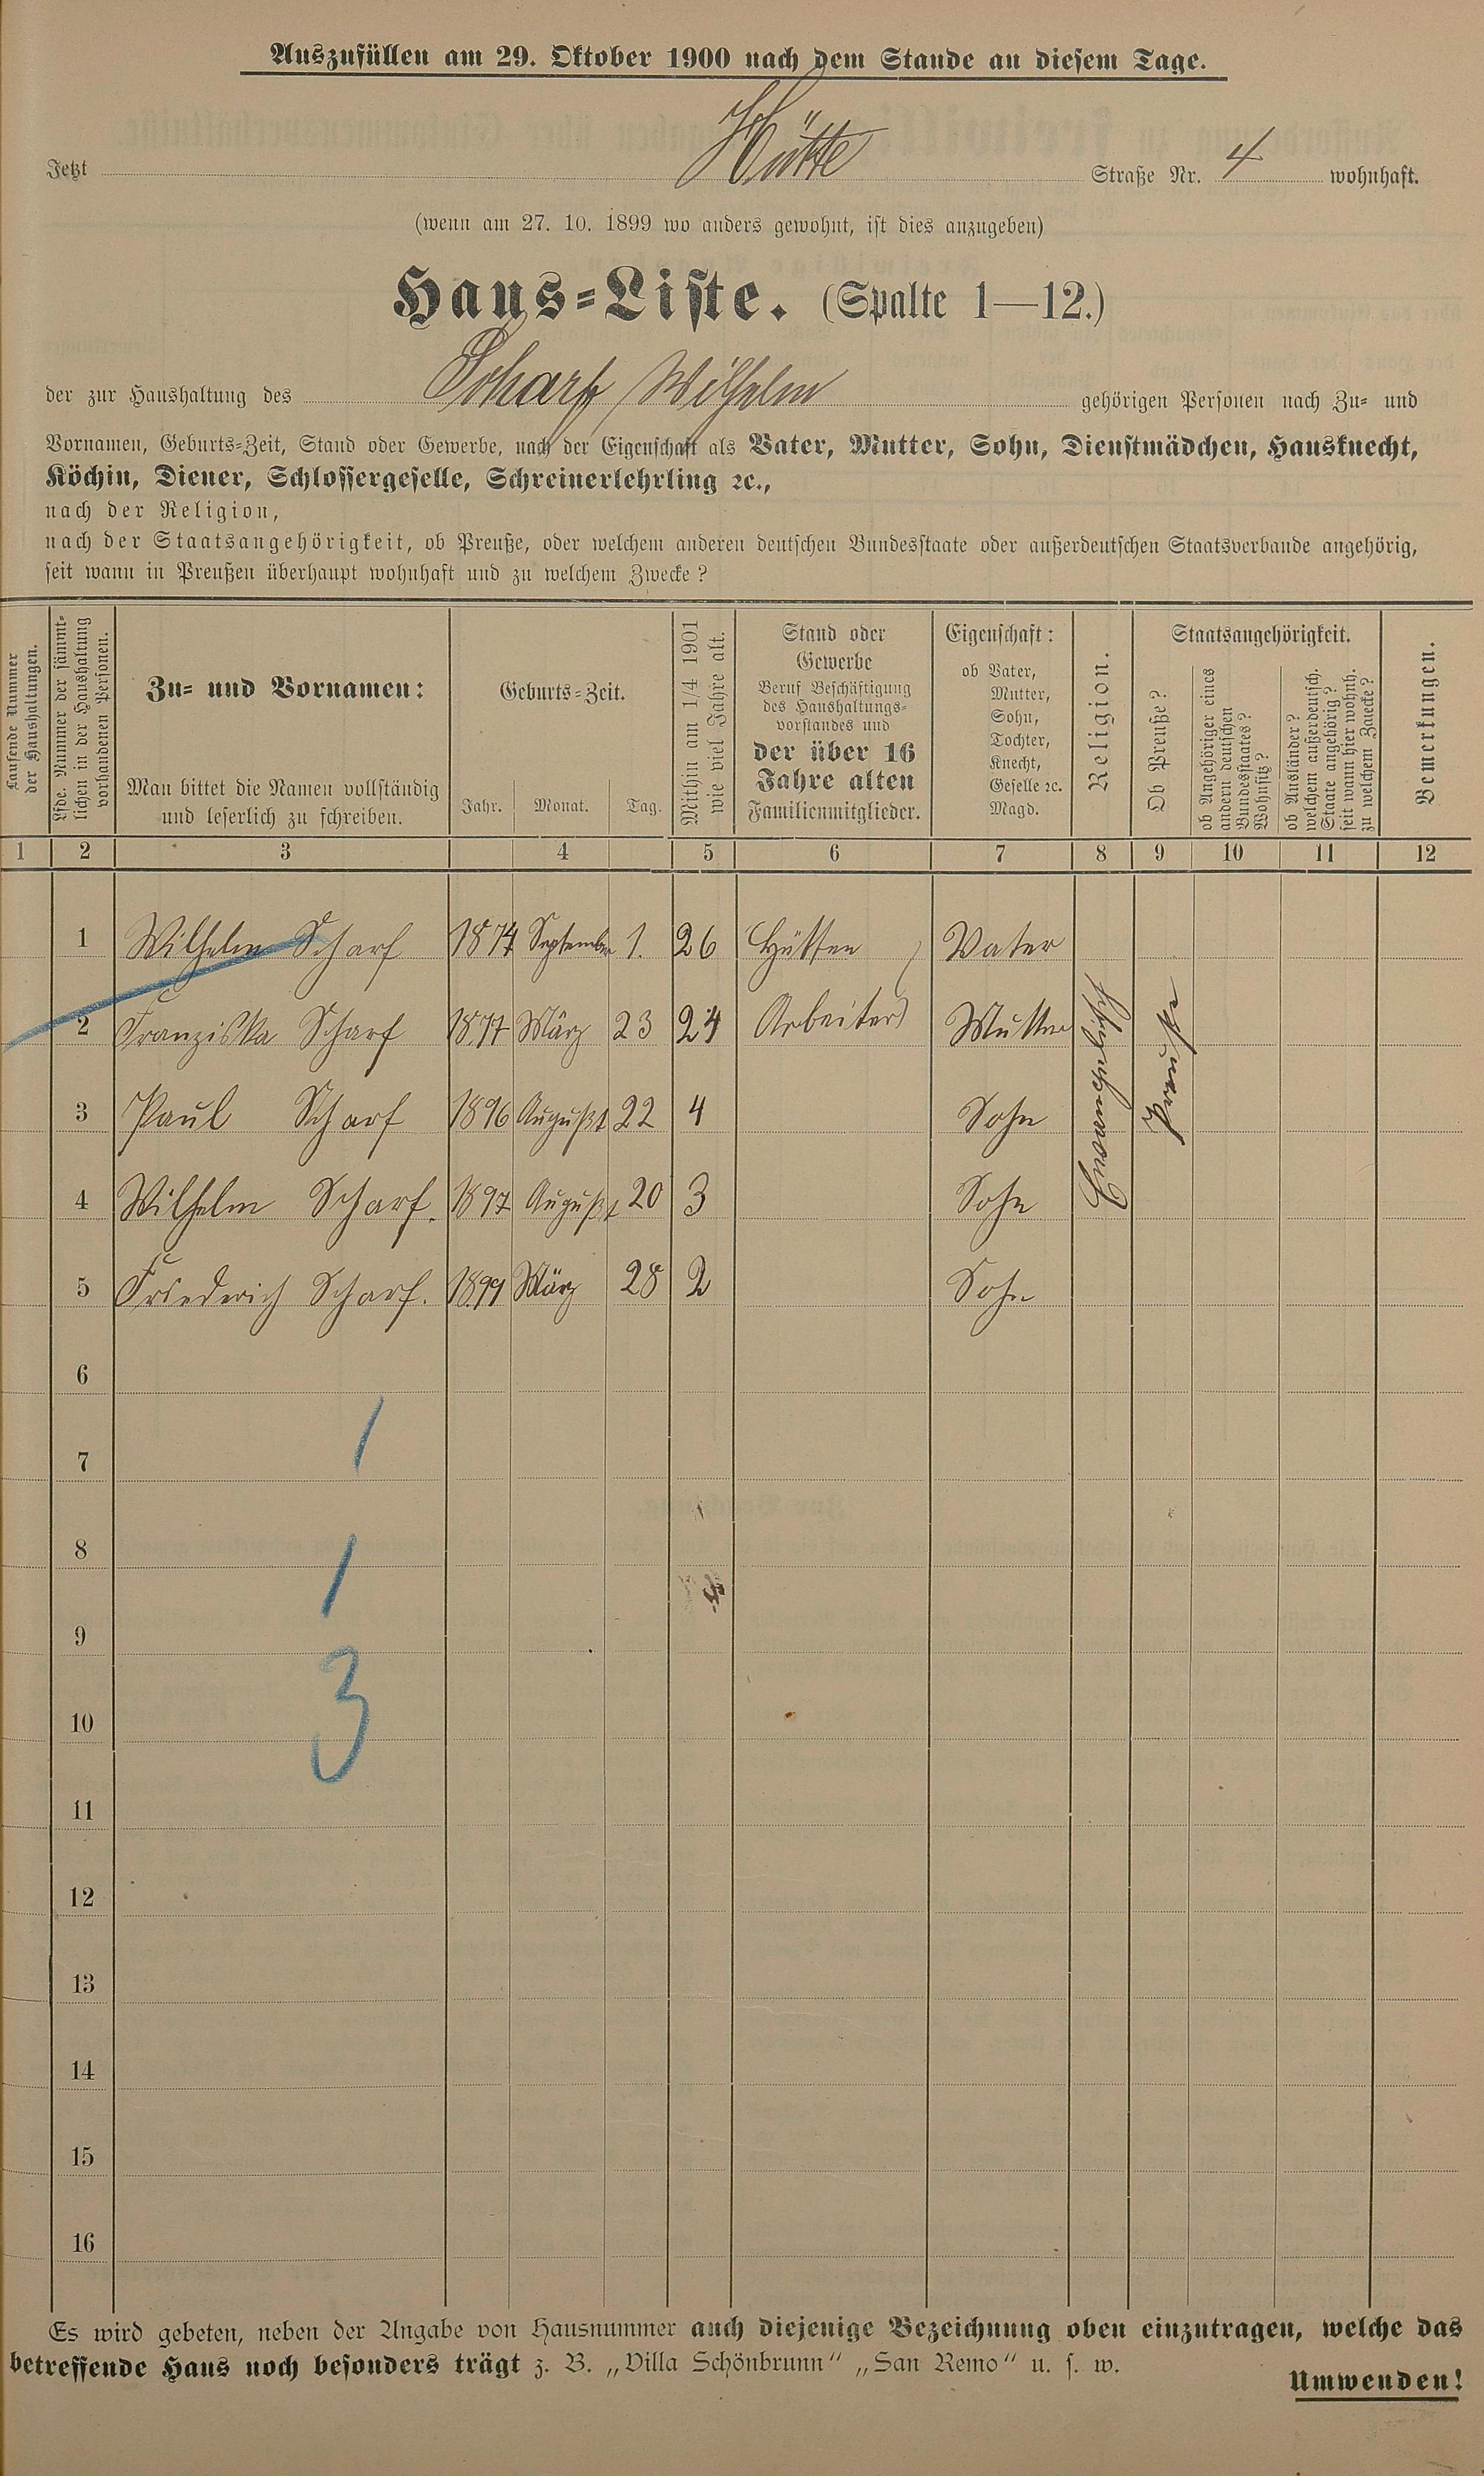 Auszufüllen am 29. Oktober 1900 nach dem Stande an diesem Tage.
Jetzt Hütte Straße Nr. 4 wohnhaft.
(wenn am 27. 10. 1899 wo anders gewohnt, ist dies anzugeben)
Haus-Liste. (Spalte 1—12.)
der zur Haushaltung des Scharf Wilhelm gehörigen Personen nach Zu- und
Vornamen, Geburts-Zeit, Stand oder Gewerbe, nach der Eigenschaft als Vater, Mutter, Sohn, Dienstmädchen, Hausknecht,
Köchin, Diener, Schlossergeselle, Schreinerlehrling ꝛc.,
nach der Religion,
nach der Staatsangehörigkeit, ob Preuße, oder welchem anderen deutschen Bundesstaate oder außerdeutschen Staatsverbande angehörig,
seit wann in Preußen überhaupt wohnhaft und zu welchem Zwecke?
Laufende Nummer
der Haushaltungen.
Lfde. Nummer der sämmt-
lichen in der Haushaltung
vorhandenen Personen.
Zu- und Vornamen:
Man bittet die Namen vollständig
und leserlich zu schreiben.
Geburts-Zeit.
Jahr. Monat. Tag.
Mithin am 1/4 1901
wie viel Jahre alt.
Stand oder
Gewerbe
Beruf Beschäftigung
des Haushaltungs-
vorstandes und
der über 16
Jahre alten
Familienmitglieder.
Eigenschaft:
ob Vater,
Mutter,
Sohn,
Tochter,
Knecht,
Geselle ꝛc.
Magd.
Religion.
Staatsangehörigkeit.
Ob Preuße?
ob Angehöriger eines
andern deutschen
Bundesstaates?
Wohnsitz?
ob Ausländer?
welchem außerdeutsch.
Staate angehörig?
seit wann hier wohnh.
zu welchem Zwecke?
Bemerkungen.
1 2 3 4 5 6 7 8 9 10 11 12
1 Wilhelm Scharf 1874 September 1. 26 Hütten Vater
2 Franziska Scharf 1877 März 23 24 Arbeiter Mutter
3 Paul Scharf 1896 Augußt 22 4 Sohn
4 Wilhelm Scharf. 1897 Augußt 20 3 Sohn
5 Friederich Scharf. 1899 März 28 2 Sohn
Evamgelisch
Preuße
6
7 1
8 1
9
10 3
11
12
13
14
15
16
Es wird gebeten, neben der Angabe von Hausnummer auch diejenige Bezeichnung oben einzutragen, welche das
betreffende Haus noch besonders trägt z. B. „Villa Schönbrunn“ „San Remo“ u. s. w.
Umwenden!